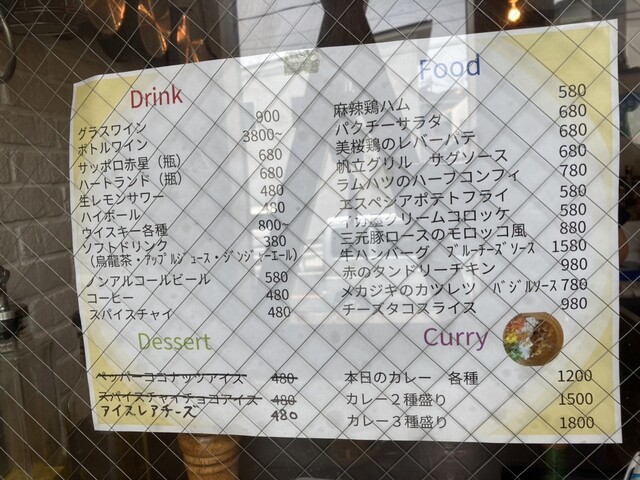 Drink
グラスワイン 900
ボトルワイン 3800~
サッポロ赤星（瓶） 680
ハートランド（瓶） 680
生レモンサワー 480
ハイボール 480
ウイスキー各種 800~
ソフトドリンク 380
（烏龍茶・アップルジュース・ジンジャーエール）
ノンアルコールビール 580
コーヒー 480
スパイスチャイ 480
Dessert
ペッパーココナッツアイス 480
スパイスチャイチョコアイス 480
アイスレアチーズ 480
Food
麻辣鶏ハム 580
パクチーサラダ 680
美桜鶏のレバーパテ 680
帆立グリル サグソース 680
ラムハツのハーフコンフィ 780
エスペシアポテトフライ 580
イカ墨クリームコロッケ 580
三元豚ロースのモロッコ風 880
牛ハンバーグ ブルーチーズソース 1580
赤のタンドリーチキン 980
メカジキのカツレツ バジルソース 780
チーズタコスライス 980
Curry
本日のカレー 各種 1200
カレー２種盛り 1500
カレー３種盛り 1800